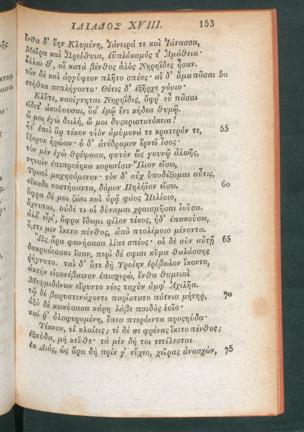 ΙΛΙΑΔΟΣ XVIII. 153
ἔνθα δ' ἔην Κλυμένη, Ἰάνειρά τε καὶ Ἰάνασσα,
Μαῖρα καὶ Ὠρείθυια, ἐϋπλόκαμός τ' Ἀμάθεια·
ἄλλαι θ', αἳ κατὰ βένθος ἁλὸς Νηρηΐδες ἦσαν.
τῶν δὲ καὶ ἀργύφεον πλῆτο σπέος· αἱ δ' ἅμα πᾶσαι 50
στήθεα πεπλήγοντο· Θέτις δ' ἐξῆρχε γόοιο·
Κλῦτε, κασίγνηται Νηρηΐδες, ὄφρ' εὖ πᾶσαι
εἴδετ' ἀκούουσαι, ὅσ' ἐμῷ ἔνι κήδεα θυμῷ.
ὤ μοι ἐγὼ δειλή, ὤ μοι δυσαριστοτόκεια!
ἥτ' ἐπεὶ ἂρ τέκον υἱὸν ἀμύμονά τε κρατερόν τε, 55
ἔξοχον ἡρώων· ὁ δ' ἀνέδραμεν ἔρνεϊ ἶσος·
τὸν μὲν ἐγὼ θρέψασα, φυτὸν ὣς γουνῷ ἀλωῆς,
νηυσὶν ἐπιπροέηκα κορωνίσιν Ἴλιον εἴσω,
Τρωσὶ μαχησόμενον· τὸν δ' οὐχ ὑποδέξομαι αὖτις,
οἴκαδε νοστήσαντα, δόμον Πηλήϊον εἴσω. 60
ὄφρα δέ μοι ζώει καὶ ὁρᾷ φάος Ἠελίοιο,
ἄχνυται, οὐδέ τί οἱ δύναμαι χραισμῆσαι ἰοῦσα.
ἀλλ' εἶμ', ὄφρα ἴδωμι φίλον τέκος, ἠδ' ἐπακούσω,
ὅ,ττι μιν ἵκετο πένθος, ἀπὸ πτολέμοιο μένοντα.
Ὣς ἄρα φωνήσασα λίπε σπέος· αἱ δὲ σὺν αὐτῇ 65
δακρυόεσσαι ἴσαν, περὶ δέ σφισι κῦμα θαλάσσης
ῥήγνυτο. ταὶ δ' ὅτε δὴ Τροίην ἐρίβωλον ἵκοντο,
ἀκτὴν εἰσανέβαινον ἐπισχερὼ, ἔνθα θαμειαὶ
Μυρμιδόνων εἴρυντο νέες ταχὺν ἀμφ' Ἀχιλῆα.
τῷ δὲ βαρυστενάχοντι παρίστατο πότνια μήτηρ, 70
ὀξὺ δὲ κωκύσασα κάρη λάβε παιδὸς ἑοῖο·
καί ῥ' ὀλοφυρομένη, ἔπεα πτερόεντα προσηύδα·
Τέκνον, τί κλαίεις; τί δέ σε φρένας ἵκετο πένθος;
ἐξαύδα, μὴ κεῦθε· τὰ μὲν δή τοι τετέλεσται
ἐκ Διὸς, ὡς ἄρα δὴ πρίν γ' εὔχεο, χεῖρας ἀνασχὼν, 75